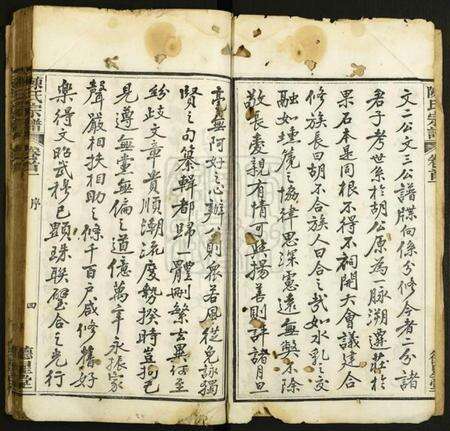 陳氏宗譜
卷首
文二公文三公譜牒向係分修今者二分諸
君子考世系於胡公原為一脉溯遷莊於
果石本是同根不得不祠開大會議建合
修族長曰胡不合族人曰合之哉如水乳之交
融如鐘箎之協律思深慮遠無無不除
敬長愛親有情可興揚善則評諸月旦
無阿好之心辦則衆若風從免詠獨
賢之句纂輯都歸一體刪繁去異何至
紛歧文章貴順潮流度勢揆時豈拘己
見遵無黨無偏之道億萬年永振家
聲嚴相扶相助之條千百戶咸修舊好
樂得文昭武穆已顯珠聯璧合之光行
陳氏宗譜
卷首
序
四
德星堂